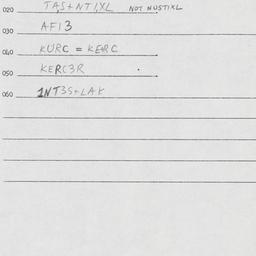 020 TA,S+NT I,XL NOT NUSTIXL
030 AFI3
040 KURC = KERC
050 KERC3R
060 1NT3S+LAK